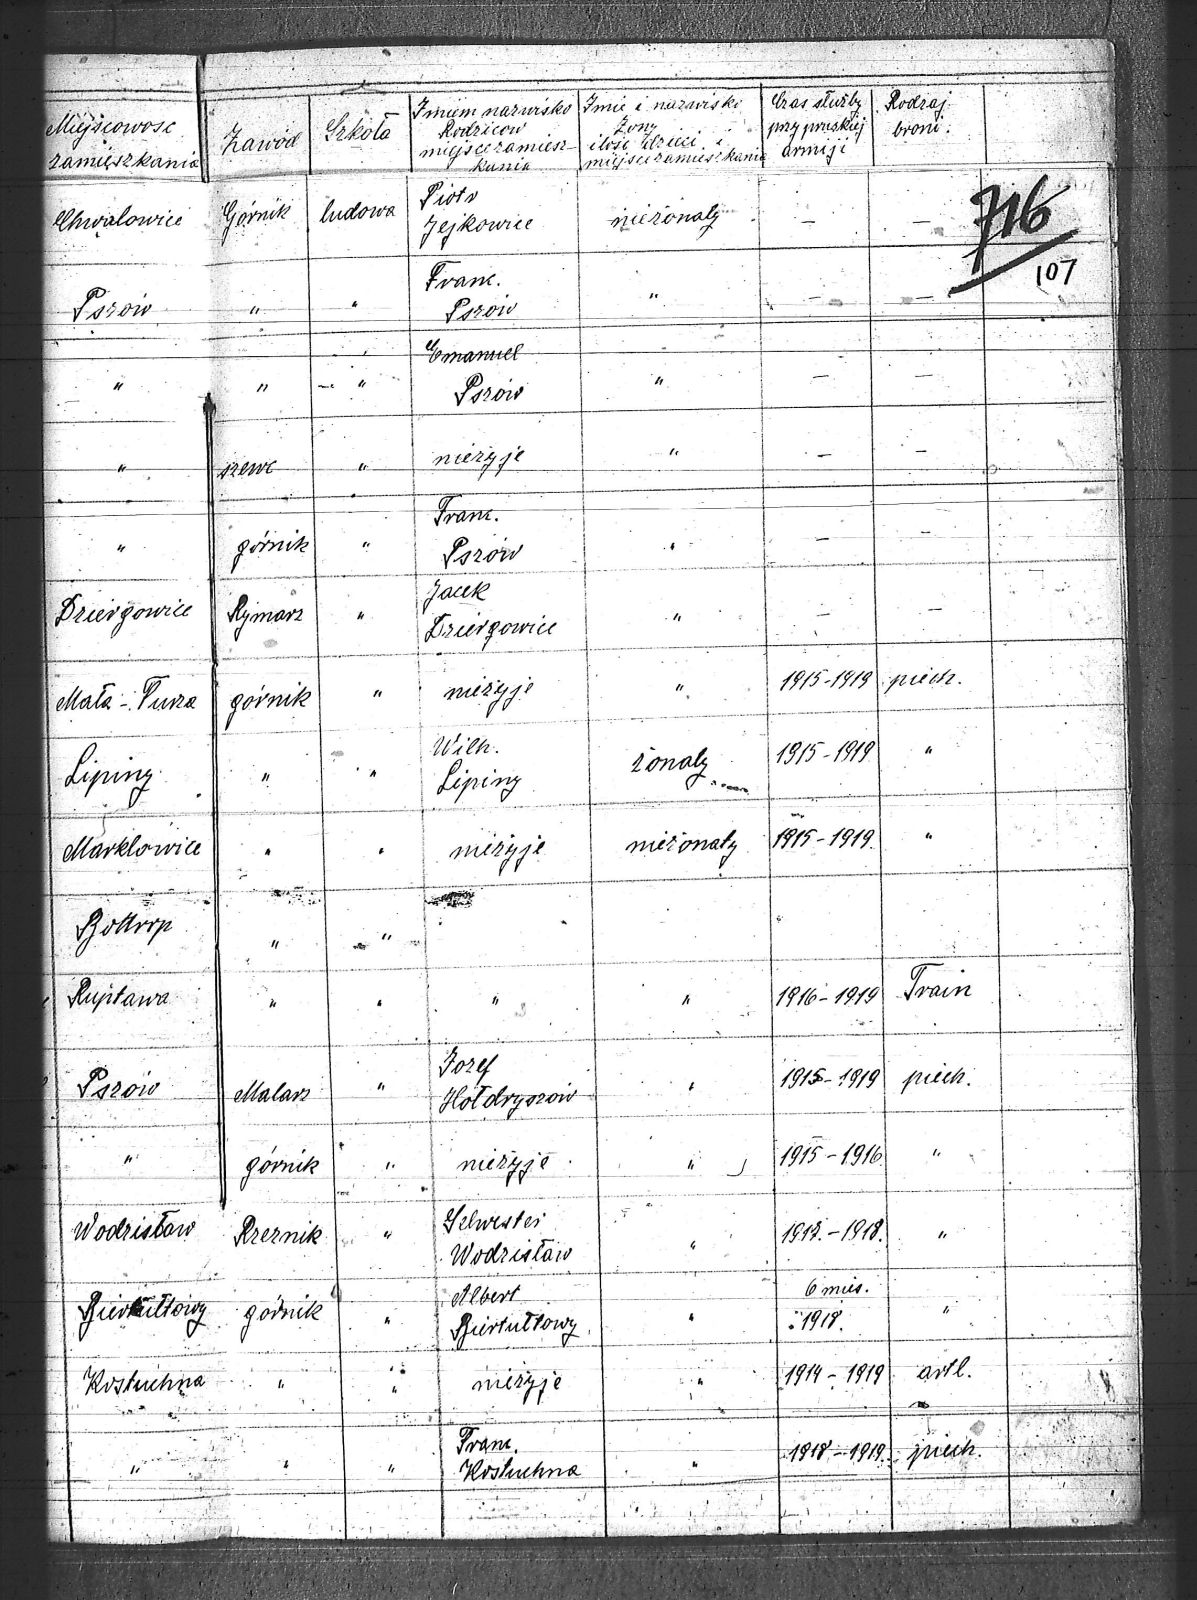 Miejscowość zamieszkania Zawód Szkoła Imiem nazwisko Rodziców miejscezamiesz-kania Imie i nazwiski Zony ilość dzieci i miejscezamieszkania Czas służby przy pruskiej armiji Rodzaj broni.
716
107
Chwalowice Górnik ludowa Piotr Jejkowice nieżonaty — —
Pszów " " Franc. Pszów " — —
" " — " Emanuel Pszów " — —
" szewc " nieżyje " — —
" górnik " Franc. Pszów " — —
Dziergowice Rymarz " Jacek Dziergowice " — —
Mała-Turza górnik " nieżyje " 1915-1919 piech.
Lipiny " " Wilh. Lipiny żonaty 1915-1919 "
Marklowice " " nieżyje nieżonaty 1915-1919. "
Bottrop " "
Ruptawa " " " " 1916-1919 Train
Pszów Malarz " Jozef Hołdryszów " 1915-1919 piech.
" górnik " nieżyje " 1915-1916 "
Wodzisław Rzeznik " Sylwester Wodzisław " 1917.-1918. "
Biertułtowy górnik " Albert Biertułtowy " 6 mies. 1918. "
Kostuchna " " nieżyje " 1914-1919 artl.
" " " Franc. Kostuchna " 1918-1919. piech.